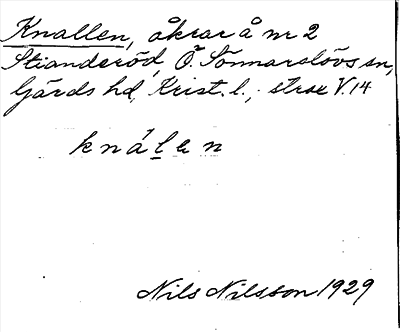 Knallen, åkrar å nr 2
Stianderöd, Ö. Sönnarslövs sn,
Gärds hd, Krist. l.; strax V. 14
knálen
Nils Nilsson 1929